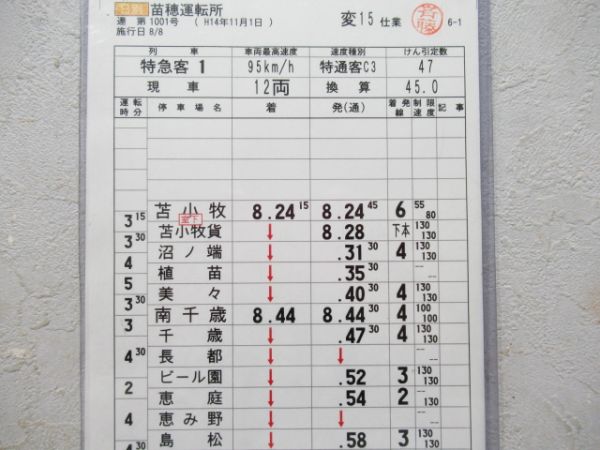 日別 苗穂運転所
運 第 1001号 ( H14年11月1日 ) 変15 仕業 6-1
施行日 8/8
列 車 車両最高速度 速度種別 けん引定数
特急客 1 95km/h 特通客C3 47
現 車 12両 換 算 45.0
運転時分 停 車 場 名 着 発(通) 着発線 制限速度 記 事
苫 小 牧 8.24 15 8.24 45 6 55 80
3 15 室下
苫小牧貨 ↓ 8.28 下本 130 130
3 30
沼 ノ 端 ↓ .31 30 4 130 130
4
植 苗 ↓ .35 30 -- --
5
美 々 ↓ .40 30 4 130 130
3 30
南 千 歳 8.44 8.44 30 4 100 100
3
千 歳 ↓ .47 30 4 130 130
長 都 ↓ ↓ -- --
4 30
ビール園 ↓ .52 3 130 130
2
恵 庭 ↓ .54 2 130 --
恵 み 野 ↓ ↓ -- --
4
島 松 ↓ .58 3 130 130
4 30